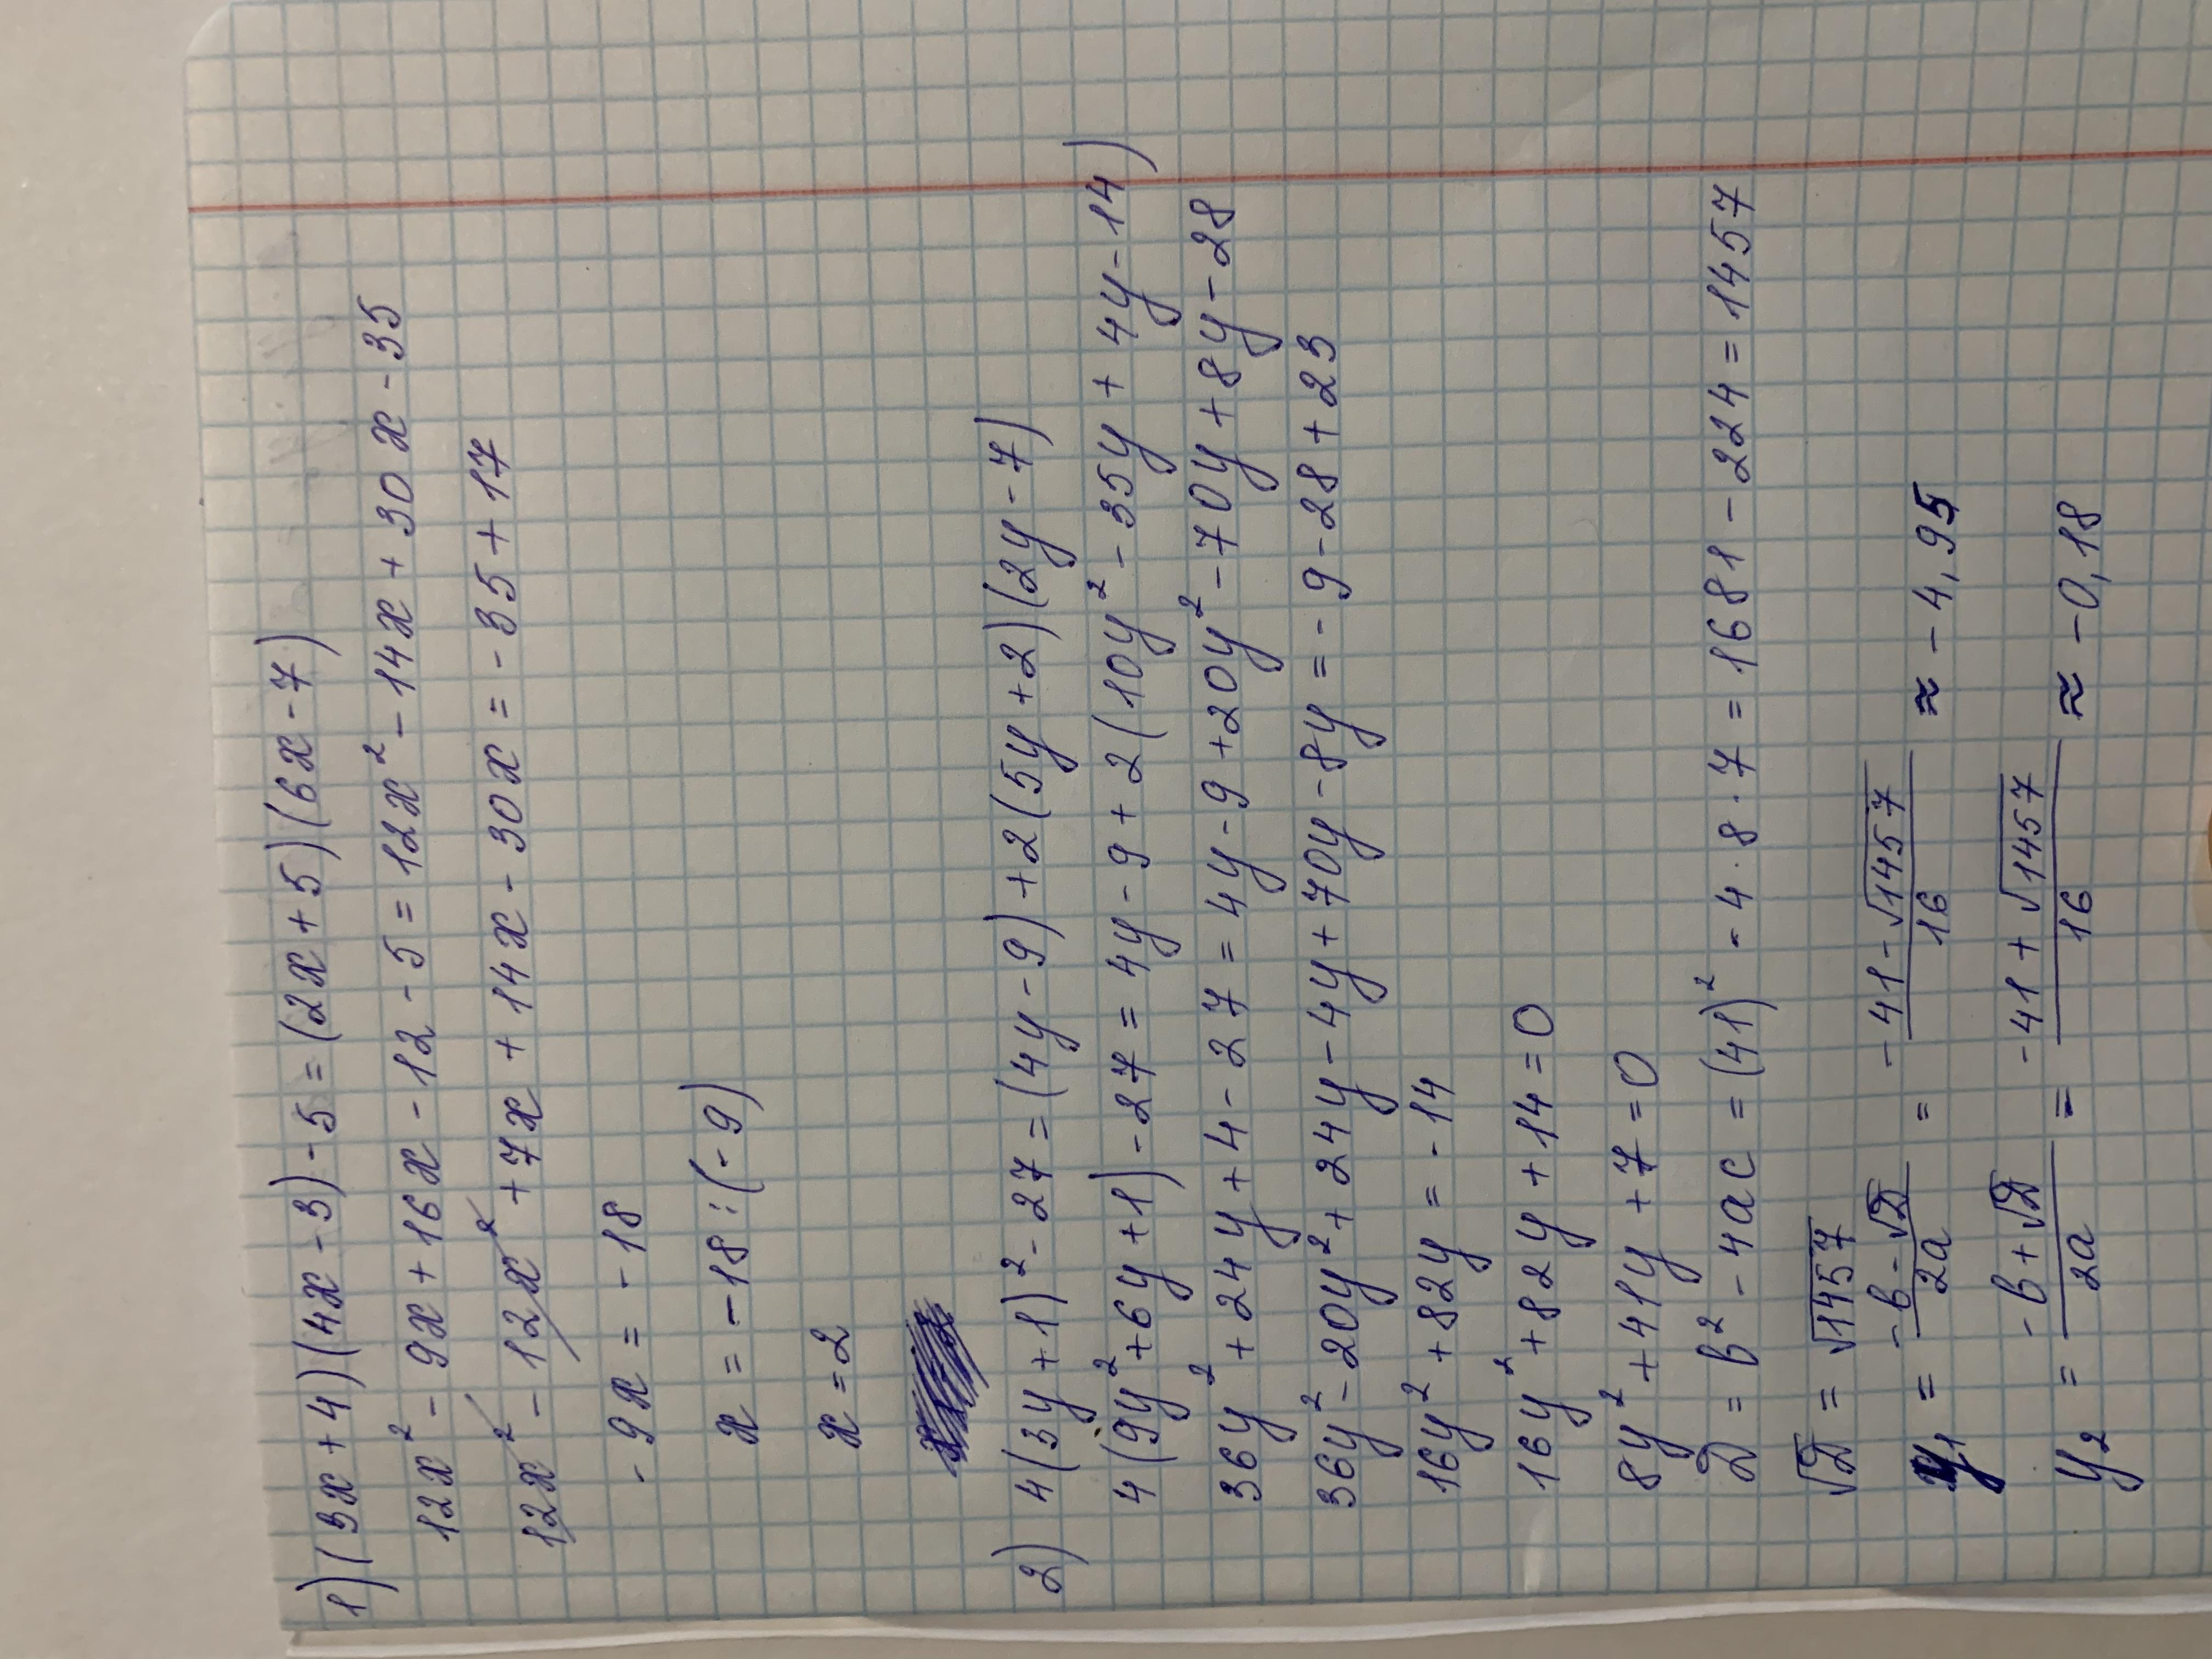 1) (3x + 4)(4x - 3) - 5 = (2x + 5)(6x - 7)
12x² - 9x + 16x - 12 - 5 = 12x² - 14x + 30x - 35
12x² - 12x² + 7x + 14x - 30x = - 35 + 17
- 9x = - 18
x = - 18 : (- 9)
x = 2
2) 4(3y + 1)² - 27 = (4y - 9) + 2(5y + 2)(2y - 7)
4(9y² + 6y + 1) - 27 = 4y - 9 + 2(10y² - 35y + 4y - 14)
36y² + 24y + 4 - 27 = 4y - 9 + 20y² - 70y + 8y - 28
36y² - 20y² + 24y - 4y + 70y - 8y = - 9 - 28 + 23
16y² + 82y = - 14
16y² + 82y + 14 = 0
8y² + 41y + 7 = 0
D = b² - 4ac = (41)² - 4 · 8 · 7 = 1681 - 224 = 1457
√D = √1457
y₁ = (-b - √D)/2a = (-41 - √1457)/16 ≈ - 4,95
y₂ = (-b + √D)/2a = (-41 + √1457)/16 ≈ - 0,18